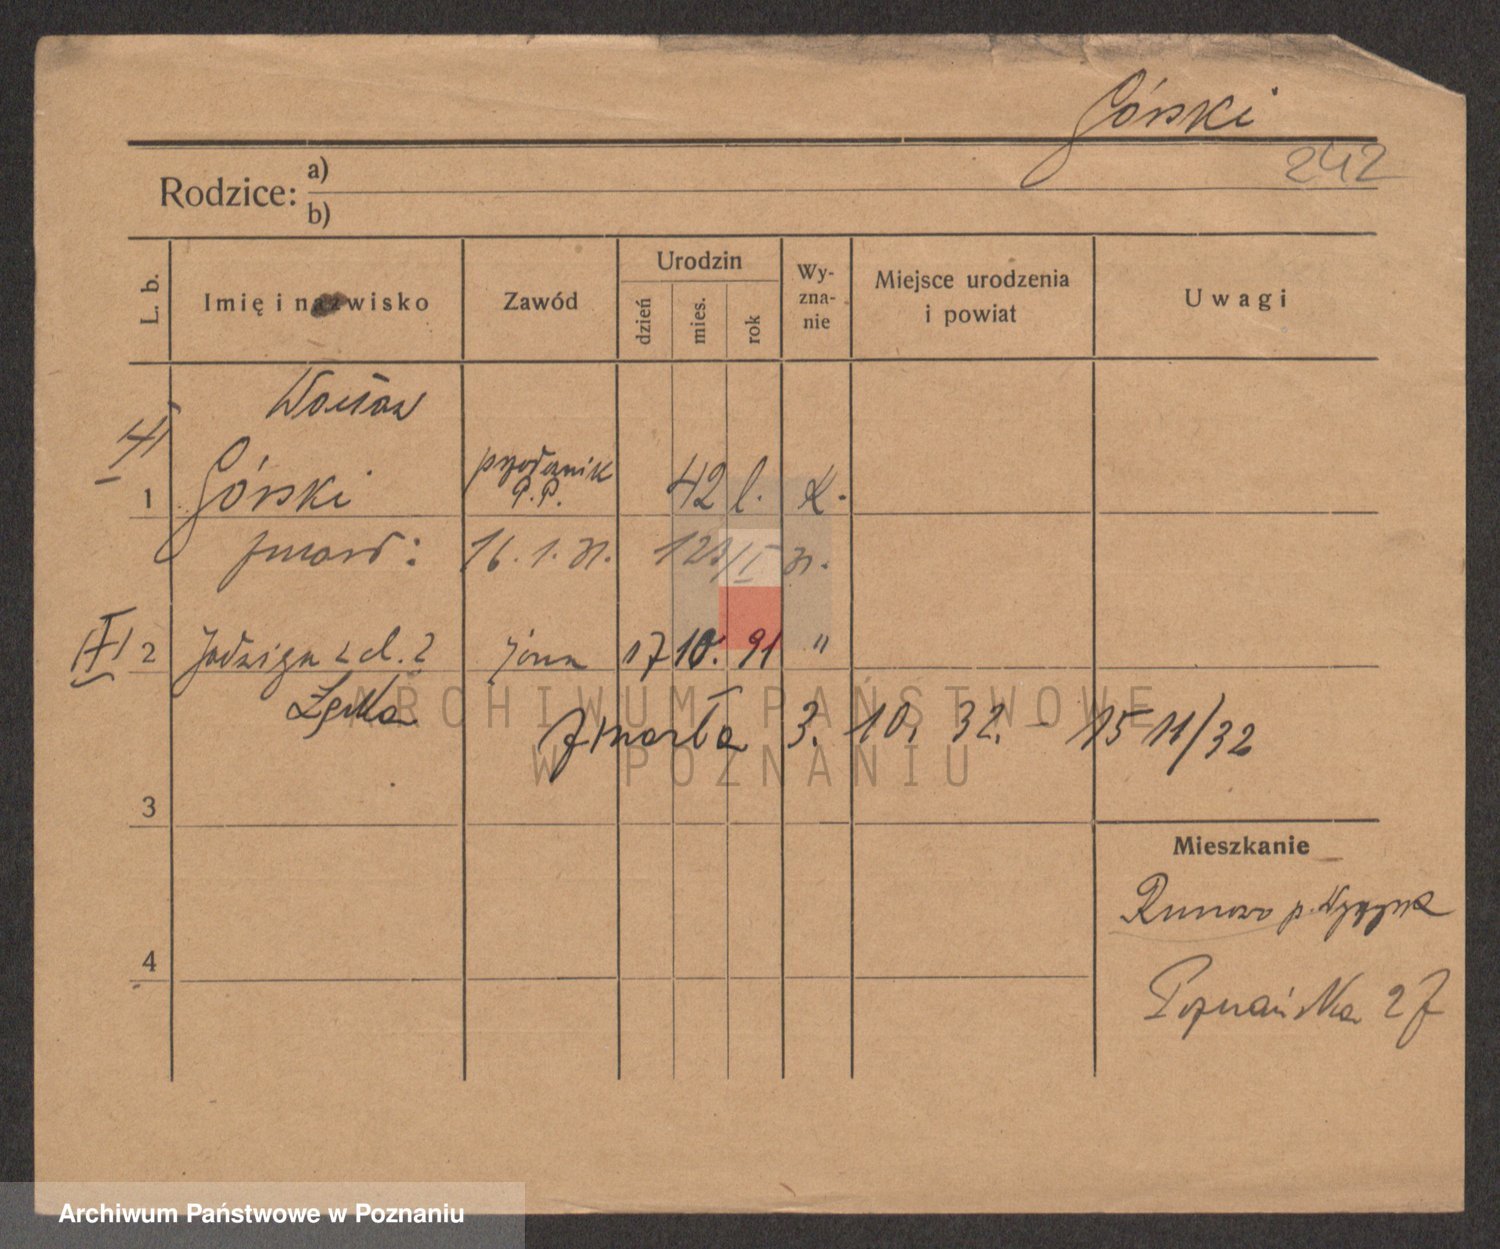 Górski
242
Rodzice: a)
b)
L. b.
Imię i nazwisko
Zawód
Urodzin
dzień
mies.
rok
Wy-
zna-
nie
Miejsce urodzenia
i powiat
Uwagi
Wacław
1 Górski
P.P. 42 l. k.
zmarł: 16. 1. 31.
2 Jadwiga z d. ? żona 17 10. 91 "
Zmarła 3. 10. 32. - 15 11/32
3
Mieszkanie
Runowo p.
4
Poznańska 27
ARCHIWUM PAŃSTWOWE
W POZNANIU
Archiwum Państwowe w Poznaniu